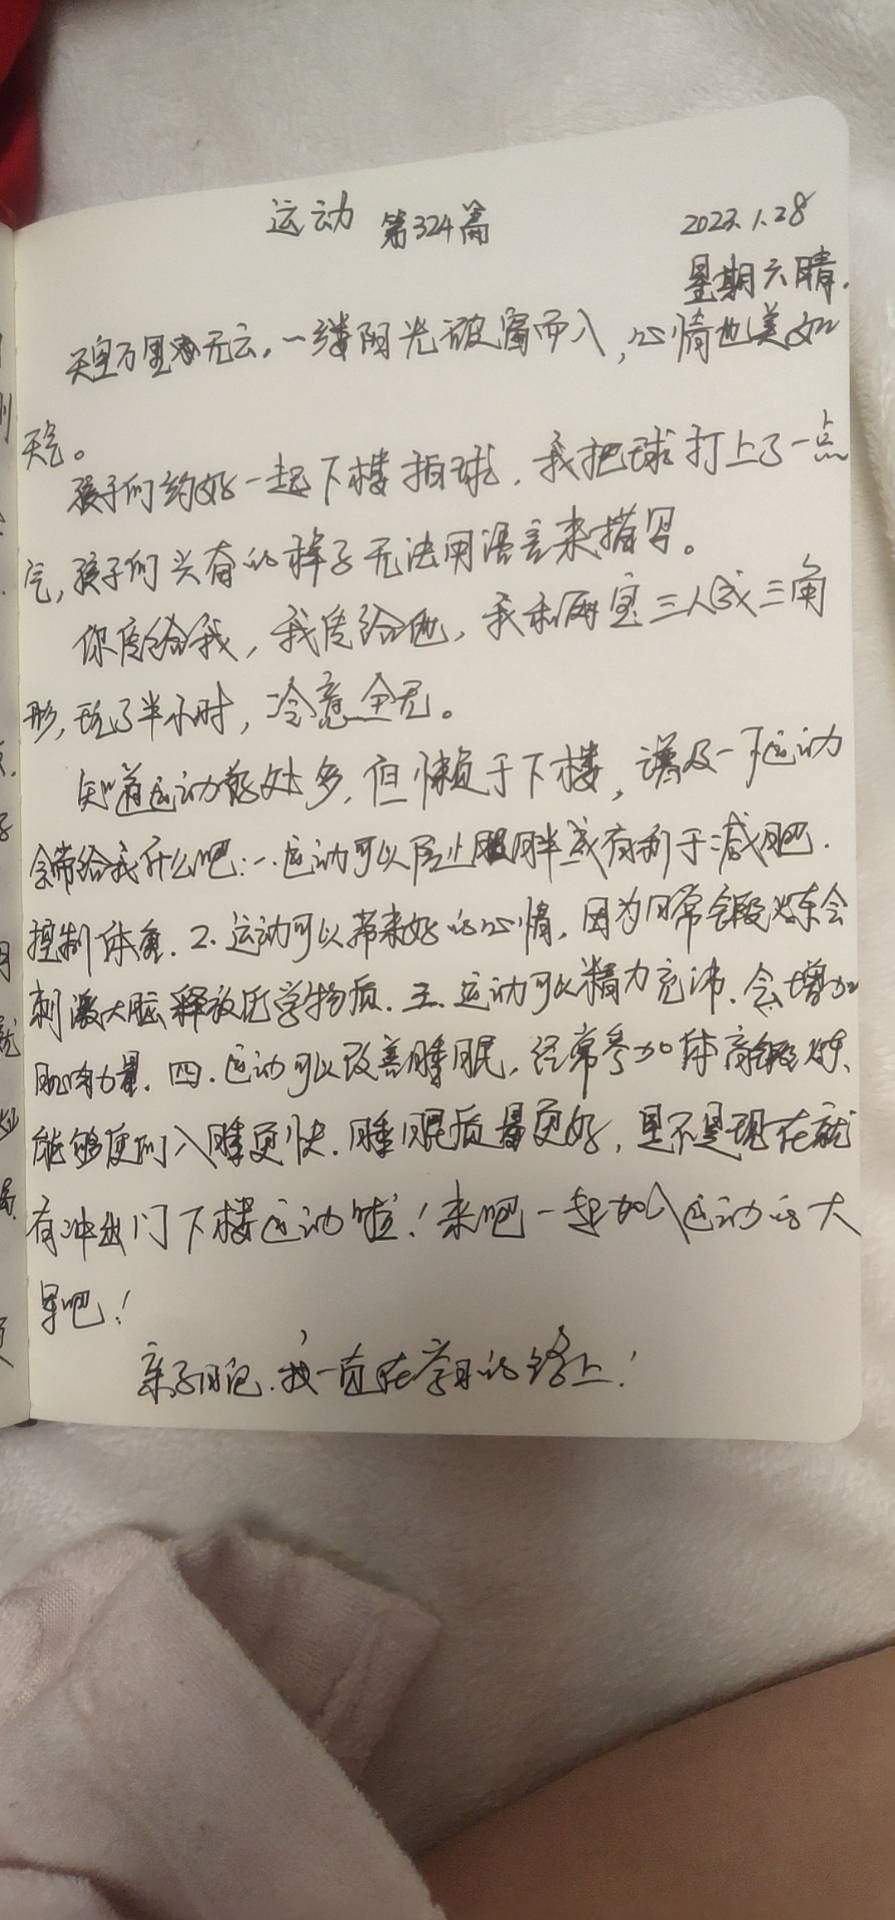 运动 第324篇 2023.1.28
星期六晴.
天空万里无云,一缕阳光破窗而入,心情也美如
天气。
孩子们约好一起下楼拍球,我把球打上了一点
气,孩子们兴奋的样子无法用语言来描写。
你传给我,我传给他,我和两宝三人成三角
形,玩了半小时,冷意全无。
知道运动好处多,但懒于下楼,谱及一下运动
会带给我什么吧:一.运动可以防止肥胖或有利于减肥.
控制体重.2.运动可以带来好的心情,因为日常锻炼会
刺激大脑释放化学物质.三.运动可以精力充沛.会增加
肌肉力量.四.运动可以改善睡眠,经常参加体育锻炼、
能够使们入睡更快.睡眠质量更好,是不是现在就
有冲出门下楼运动啦!来吧一起加入运动的大
军吧!
亲子日记.我一直在学习的路上!